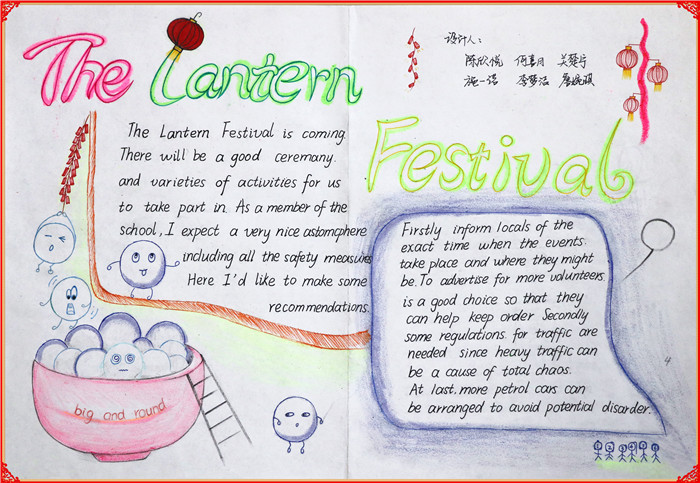 The Lantern
Festival
设计人:
The Lantern Festival is coming.
There will be a good ceremony.
and varieties of activities for us
to take part in. As a member of the
school, I expect a very nice astomphere
including all the safety measures
Here I'd like to make some
recommendations.
Firstly inform locals of the
exact time when the events.
take place and where they might
be. To advertise for more volunteers.
is a good choice so that they
can help keep order Secondly
some regulations for traffic are
needed since heavy traffic can
be a cause of total chaos.
At last, more petrol cars can
be arranged to avoid potential disarder.
big and round
4